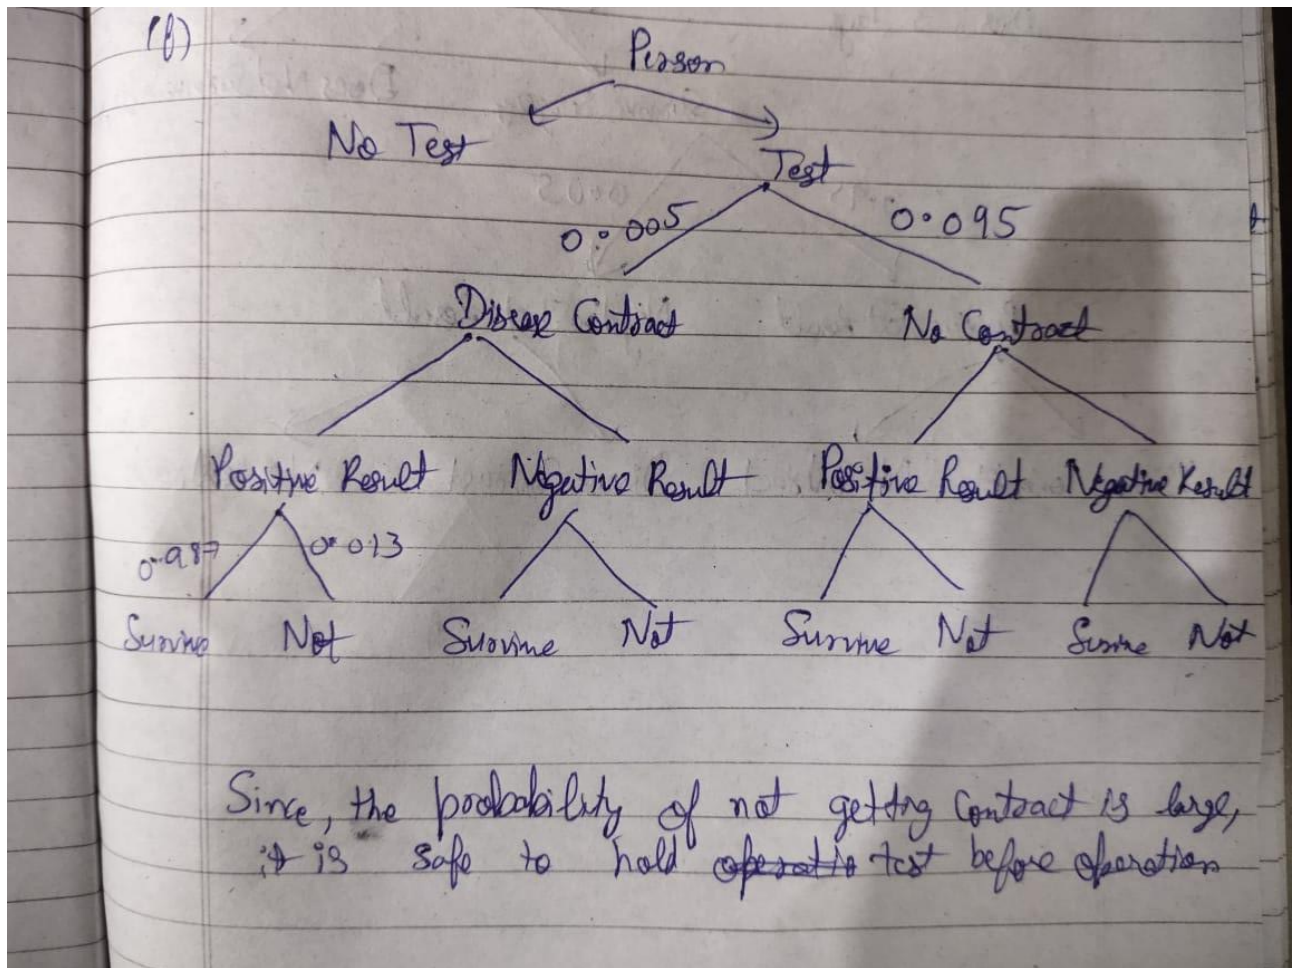 (f)
Person
No Test
Test
0.005
0.095
Disease Contract
No Contract
Positive Result
Negative Result
Positive Result
Negative Result
0.987
0.013
Survive
Not
Survive
Not
Survive
Not
Survive
Not
Since, the probability of not getting Contract is large,
it is safe to hold operatio test before operation